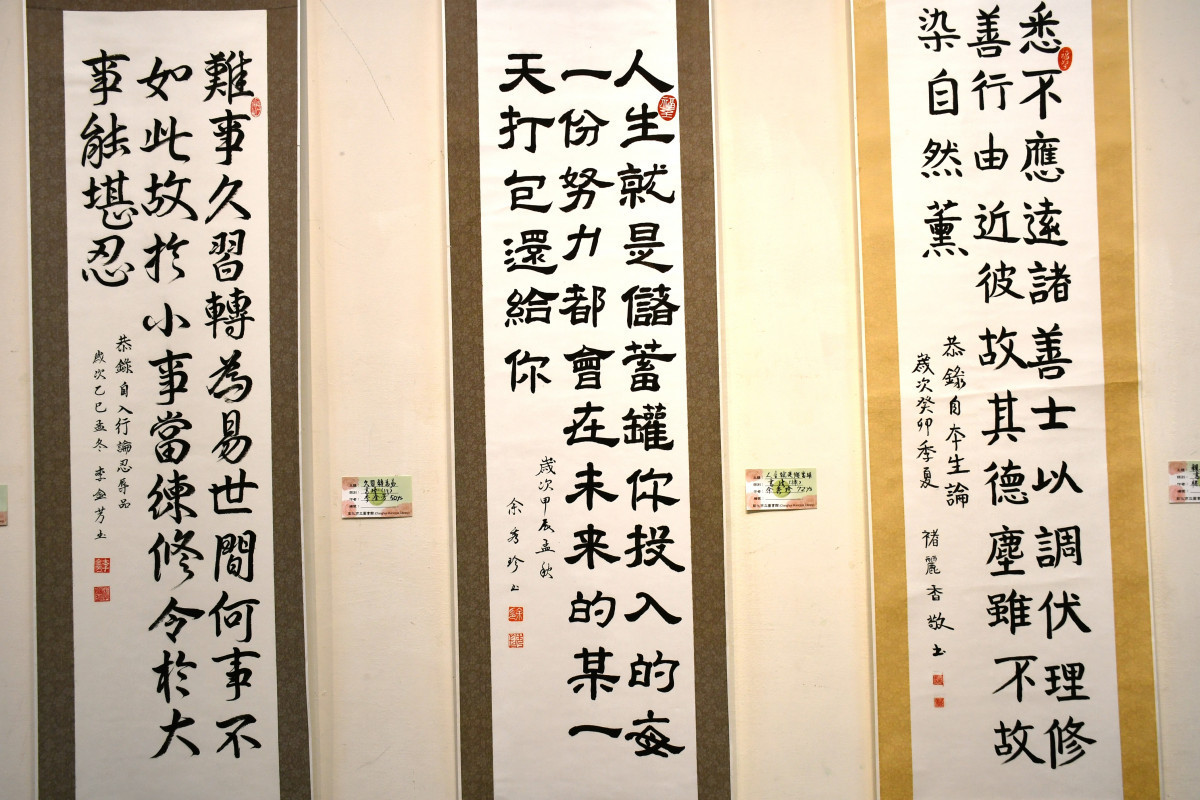 悉不應遠諸善士以調伏理修
善行由近彼故其德塵雖不故
染自然薰
恭錄自本生論
歲次癸卯季夏 褚麗香敬书
人生就是儲蓄罐你投入的每
一份努力都會在未來的某一
天打包還給你
歲次甲辰孟秋
余秀珍书
難事久習轉為易世間何事不
如此故於小事當練修令於大
事能堪忍
恭錄自入行論忍辱品
歲次乙巳孟冬 李金芳书
人生就是儲蓄罐
余秀珍 72
久習轉為易
李金芳 50